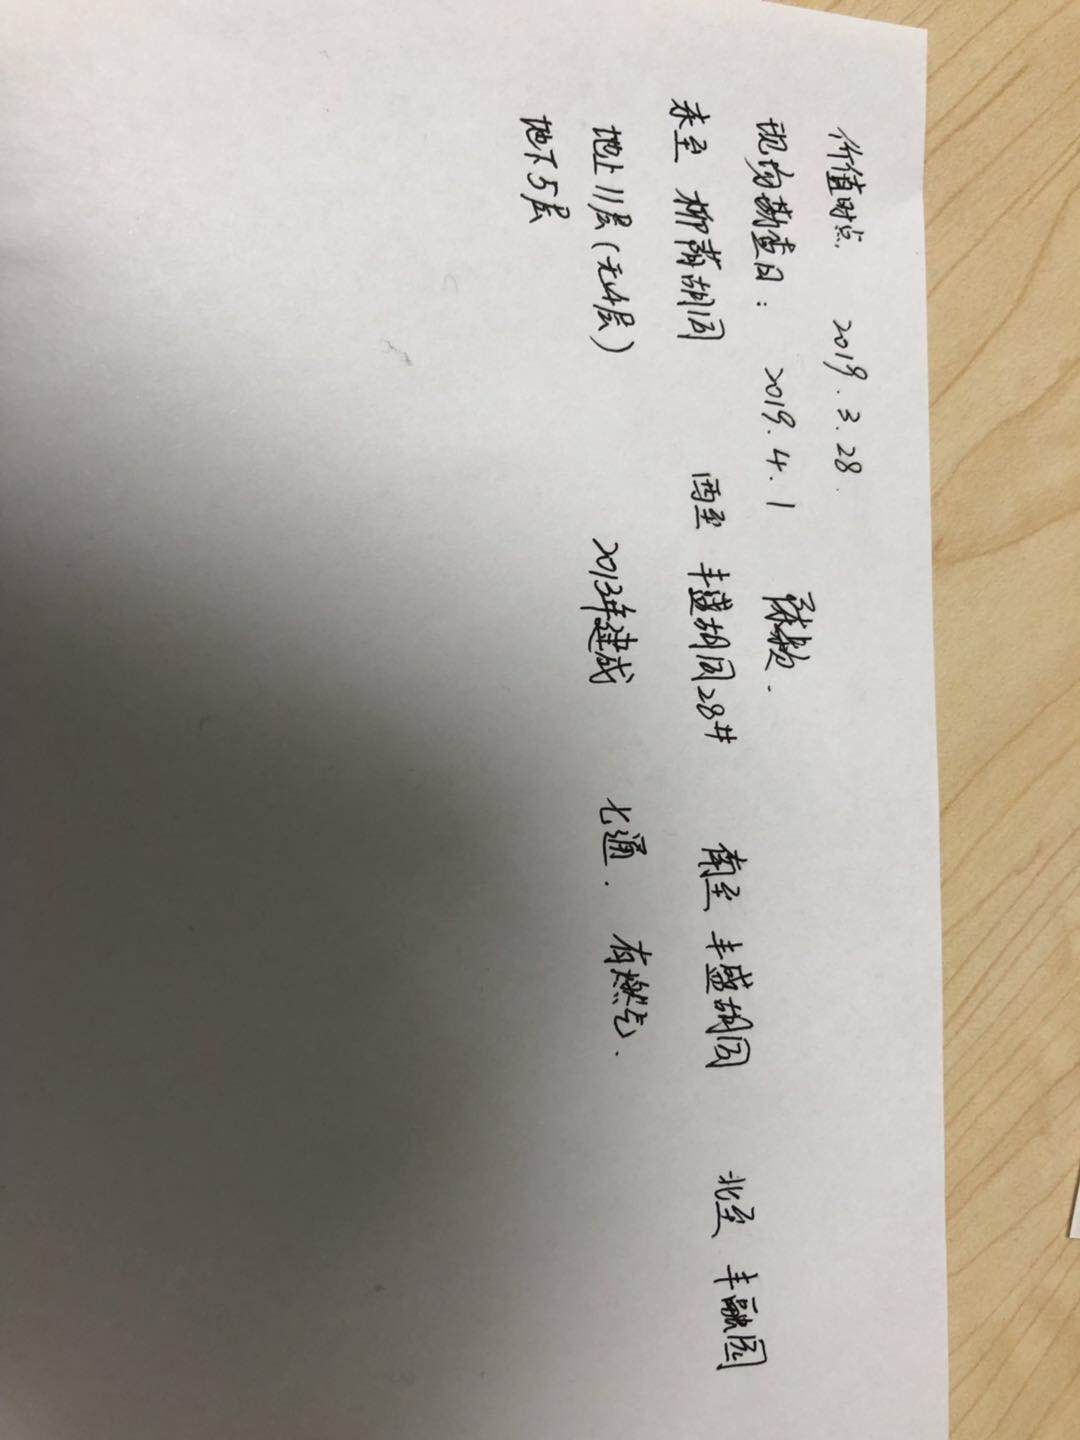 价值时点 2019.3.28.
现场勘查日: 2019.4.1
东至 柳荫胡同 西至 丰盛胡同28# 南至 丰盛胡同 北至 丰融园
地上11层(无4层) 2013年建成 七通. 有燃气.
地下5层